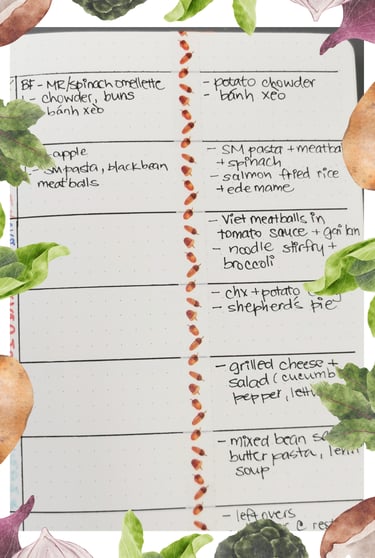 BF - MR/spinach omellette
chowder, buns
bánh xèo
apple
SM pasta, black bean
meatballs
- potato chowder
- bánh xèo
- SM pasta + meatba
+ spinach
- salmon fried rice
+ edemame
- Viet meatballs in
tomato sauce + gai lan
- noodle stirfry +
broccoli
- chx + potato
- shepherd's pie
- grilled cheese +
salad (cucumb
pepper, lett
- mixed bean sa
butter pasta,
soup
- leftovers